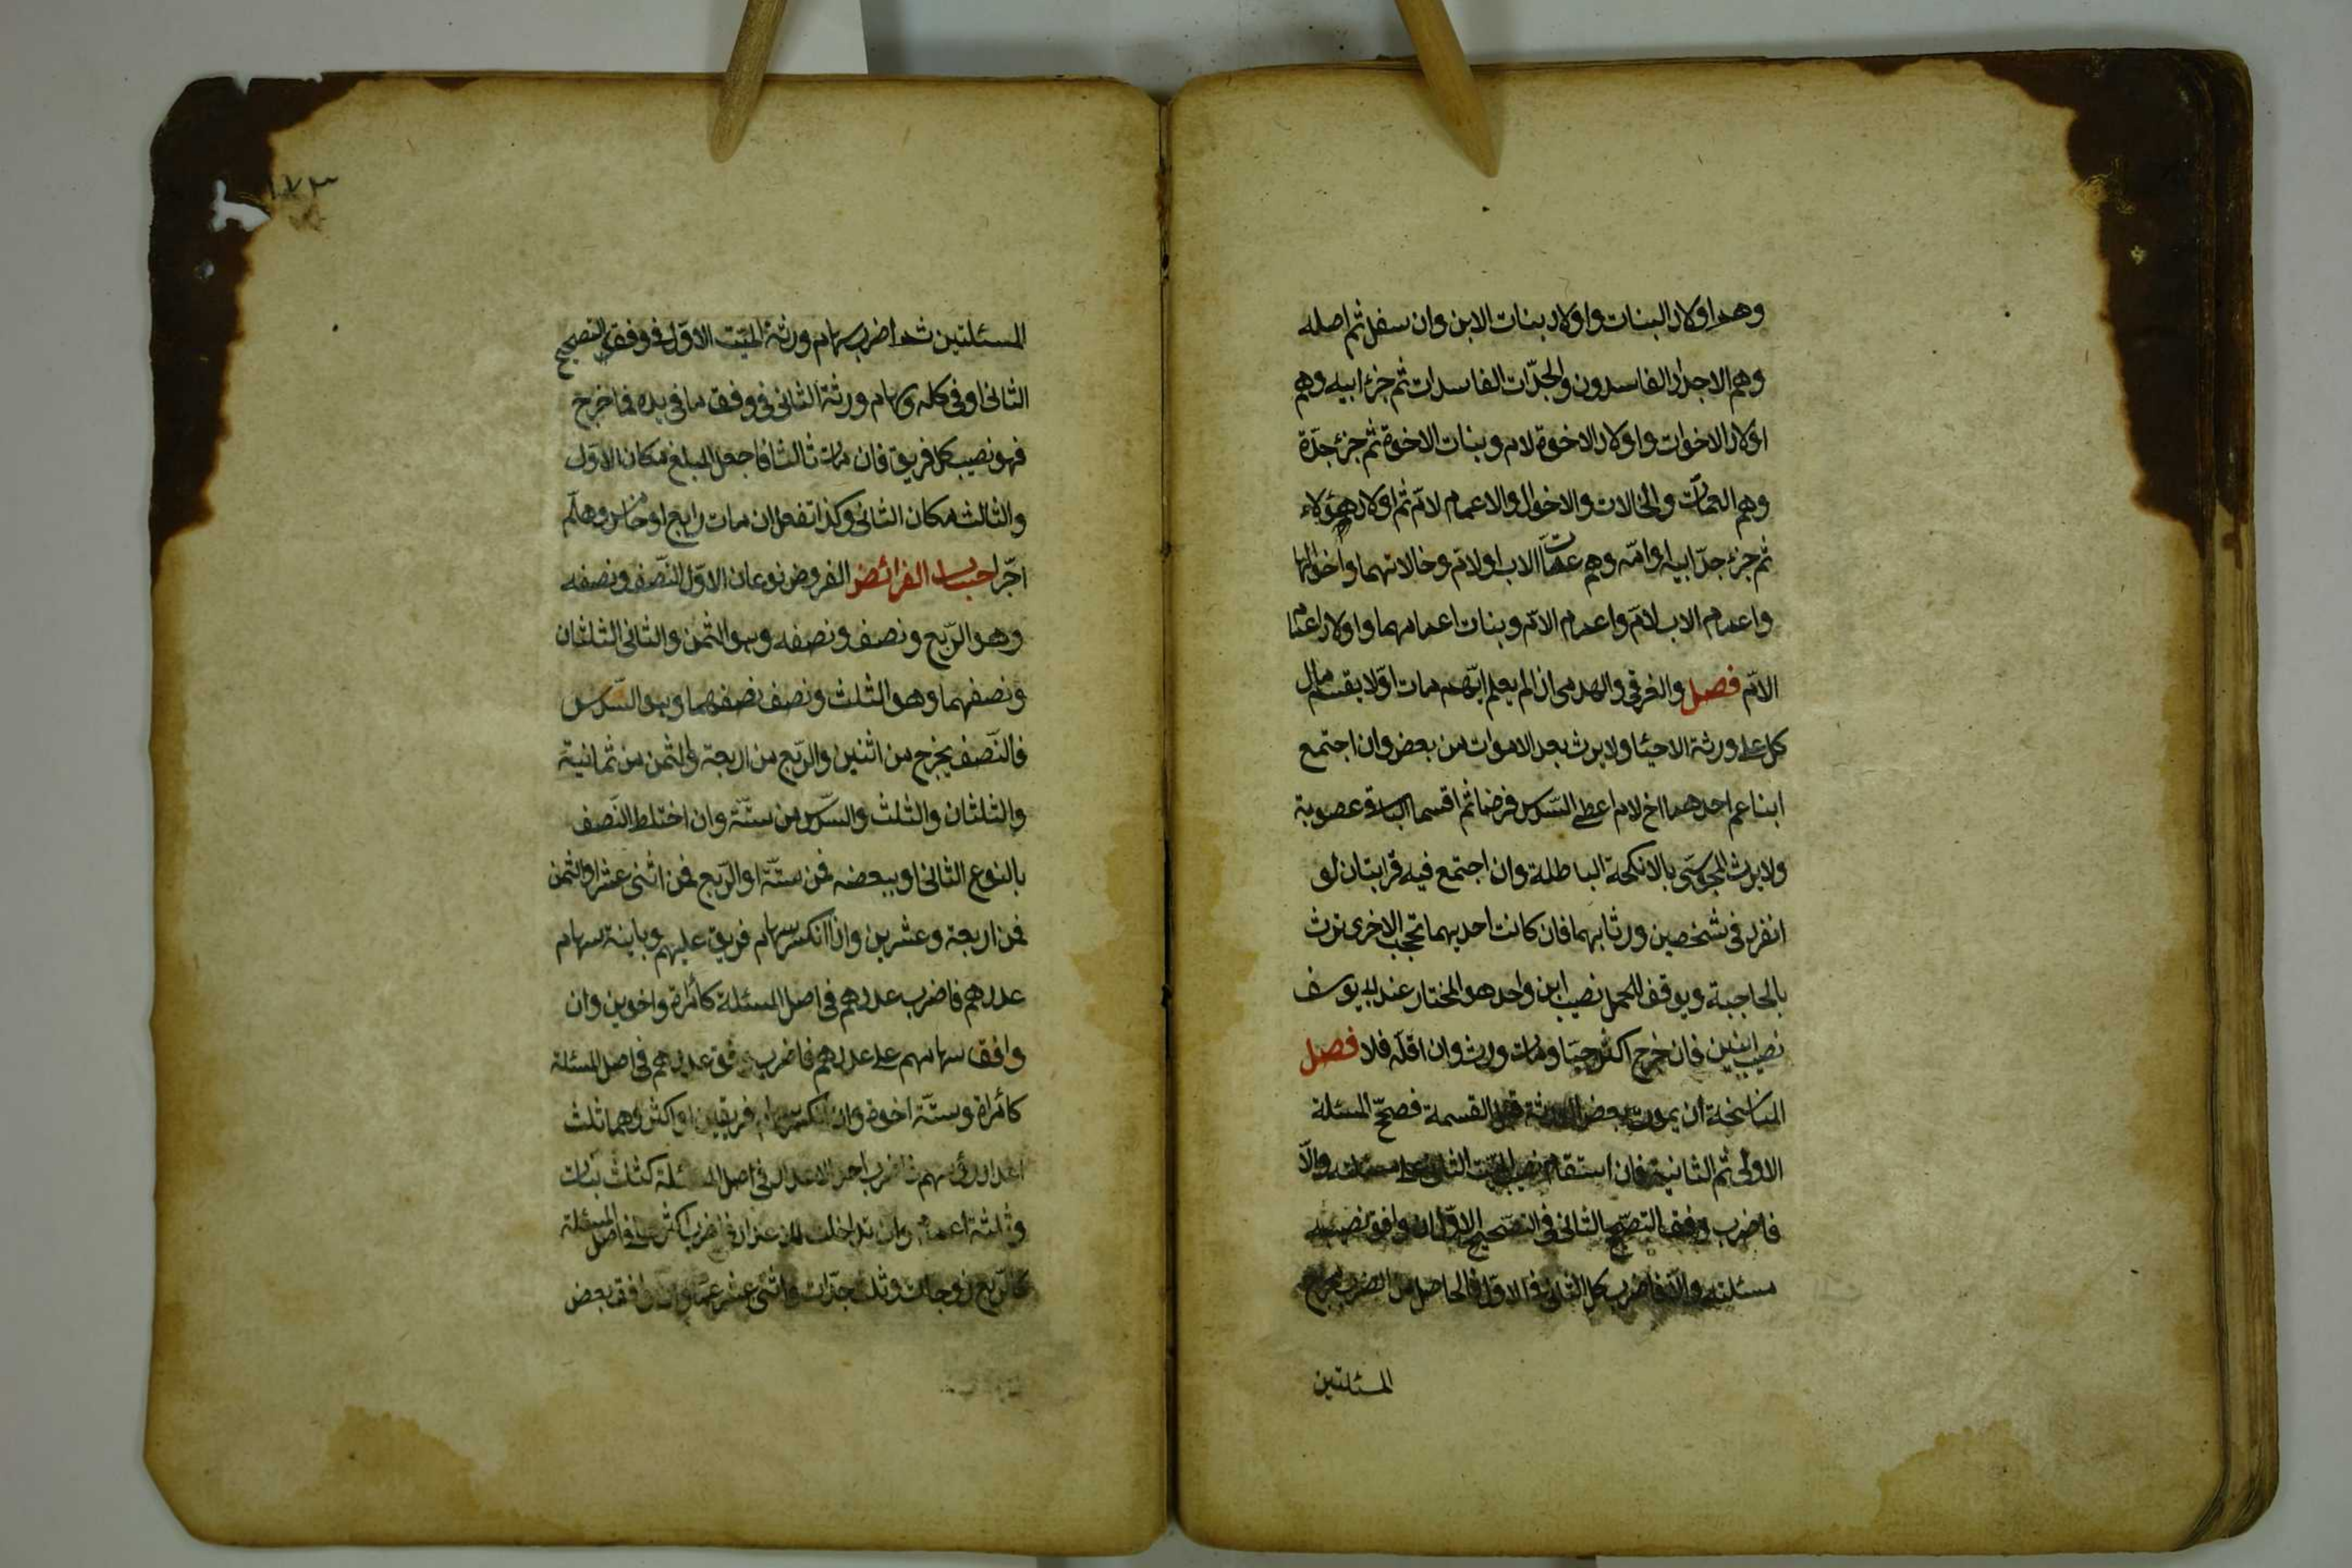 وهم اولاد البنات واولاد بنات الابن وان سفل ثم اصله
وهم الاجداد الفاسدون والجدّات الفاسدات ثم جزء ابيه وهم
اولاد الاخوات واولاد الاخوة لام وبنات الاخوة ثم جزء جدّه
وهم العمات والخالات والاخوال والاعمام لامّ ثم اولاد هؤلاء
ثم جزء جدّ ابيه او امّه وهم عمات الاب او لام وخالاتهما واخوالهما
واعمام الاب لامّ واعمام الامّ وبنات اعمامهما واولاد اعمام
الامّ فصل والغرقى والهدمى اذا لم يعلم ايّهم مات اوّلا يقسم مال
كل على ورثة الاحياء ولا يرث بعد الاموات من بعض وان اجتمع
ابنا عم احدهما اخ لام اعطى السّدس فرضا ثم اقتسما الباقى عصوبة
ولا يرث المجوسى بالانكحة الباطلة وان اجتمع فيه قرابتان لو
انفرد فى شخصين ورثا بهما فان كانت احديهما تحجب الاخرى يرث
بالحاجبة ويوقف للحمل نصيب ابن واحد هو المختار عند ابى يوسف
نصيب ابنين فان خرج اكثره حيا ومات ورث وان اقلّه فلا فصل
المناسخة ان يموت بعض الورثة قبل القسمة فصحّ المسئلة
الاولى ثم الثانية فان استقام نصيب الميّت الثانى على مسئلته والّا
فاضرب وفق التصحيح الثانى فى التصحيح الاوّل ان وافق نصيبه
مسئلته والّا فاضرب كل الثانى فى الاوّل فالحاصل من الضرب مخرج
المسئلتين
١٧٣
المسئلتين ثم اضرب سهام ورثة الميّت الاوّل فى وفق التصحيح
الثانى او فى كله وسهام ورثة الثانى فى وفق ما فى يده فما خرج
فهو نصيب كل فريق فان مات ثالث فاجعل المبلغ مكان الاوّل
والثالث مكان الثانى وكذا تفعل ان مات رابع او خامس وهلمّ
جرّا حساب الفرائض الفروض نوعان الاوّل النّصف ونصفه
وهو الرّبع ونصف ونصفه وهو الثمن والثانى الثلثان
ونصفهما وهو الثلث ونصف نصفهما وهو السّدس
فالنّصف يخرج من اثنين والرّبع من اربعة والثمن من ثمانية
والثلثان والثلث والسّدس من ستّة وان اختلط النّصف
بالنوع الثانى او ببعضه فمن ستّة او الرّبع فمن اثنى عشر او الثمن
فمن اربعة وعشرين واذا انكسر سهام فريق عليهم وباينة سهام
عددهم فاضرب عددهم فى اصل المسئلة كأمرأة واخوين وان
وافق سهامهم على عددهم فاضرب وفق عددهم فى اصل المسئلة
كأمرأة وستّة اخوة وان انكسر سهام فريقين او اكثر وهما ثلث
اعداد رؤسهم فاضرب احد الاعداد فى اصل المسئلة كثلث بنات
وثلثة اعمام وان تداخلت الاعداد فاضرب اكثرها فى اصل المسئلة
كاربع زوجات وثلث جدّات واثنى عشر عمّا وان وافق بعض